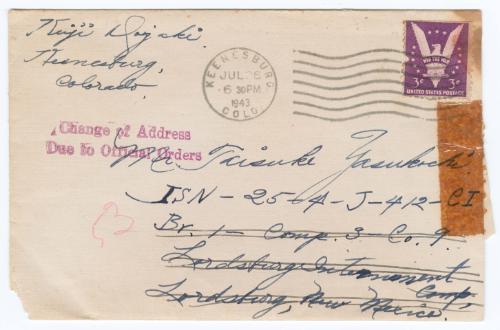 Keiji Dojaki
Keenesburg,
Colorado.
KEENESBURG
JUL 26
6 30PM
1943
COLO
WIN THE WAR
3¢ 3¢
UNITED STATES POSTAGE
Change of Address
Due to Official Orders
Mr. Taisuke Yasukochi
ISN-25-4-J-412-CI
Br. 1 - Comp. 3 - Co. 9
Lordsburg Internment Camp,
Lordsburg, New Mexico.